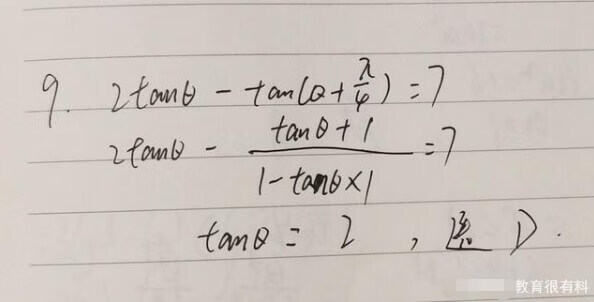 9. 2tanθ - tan(θ + π/4) = 7
2tanθ - (tanθ + 1)/(1 - tanθ×1) = 7
tanθ = 2 , 选 D.
教育很有料